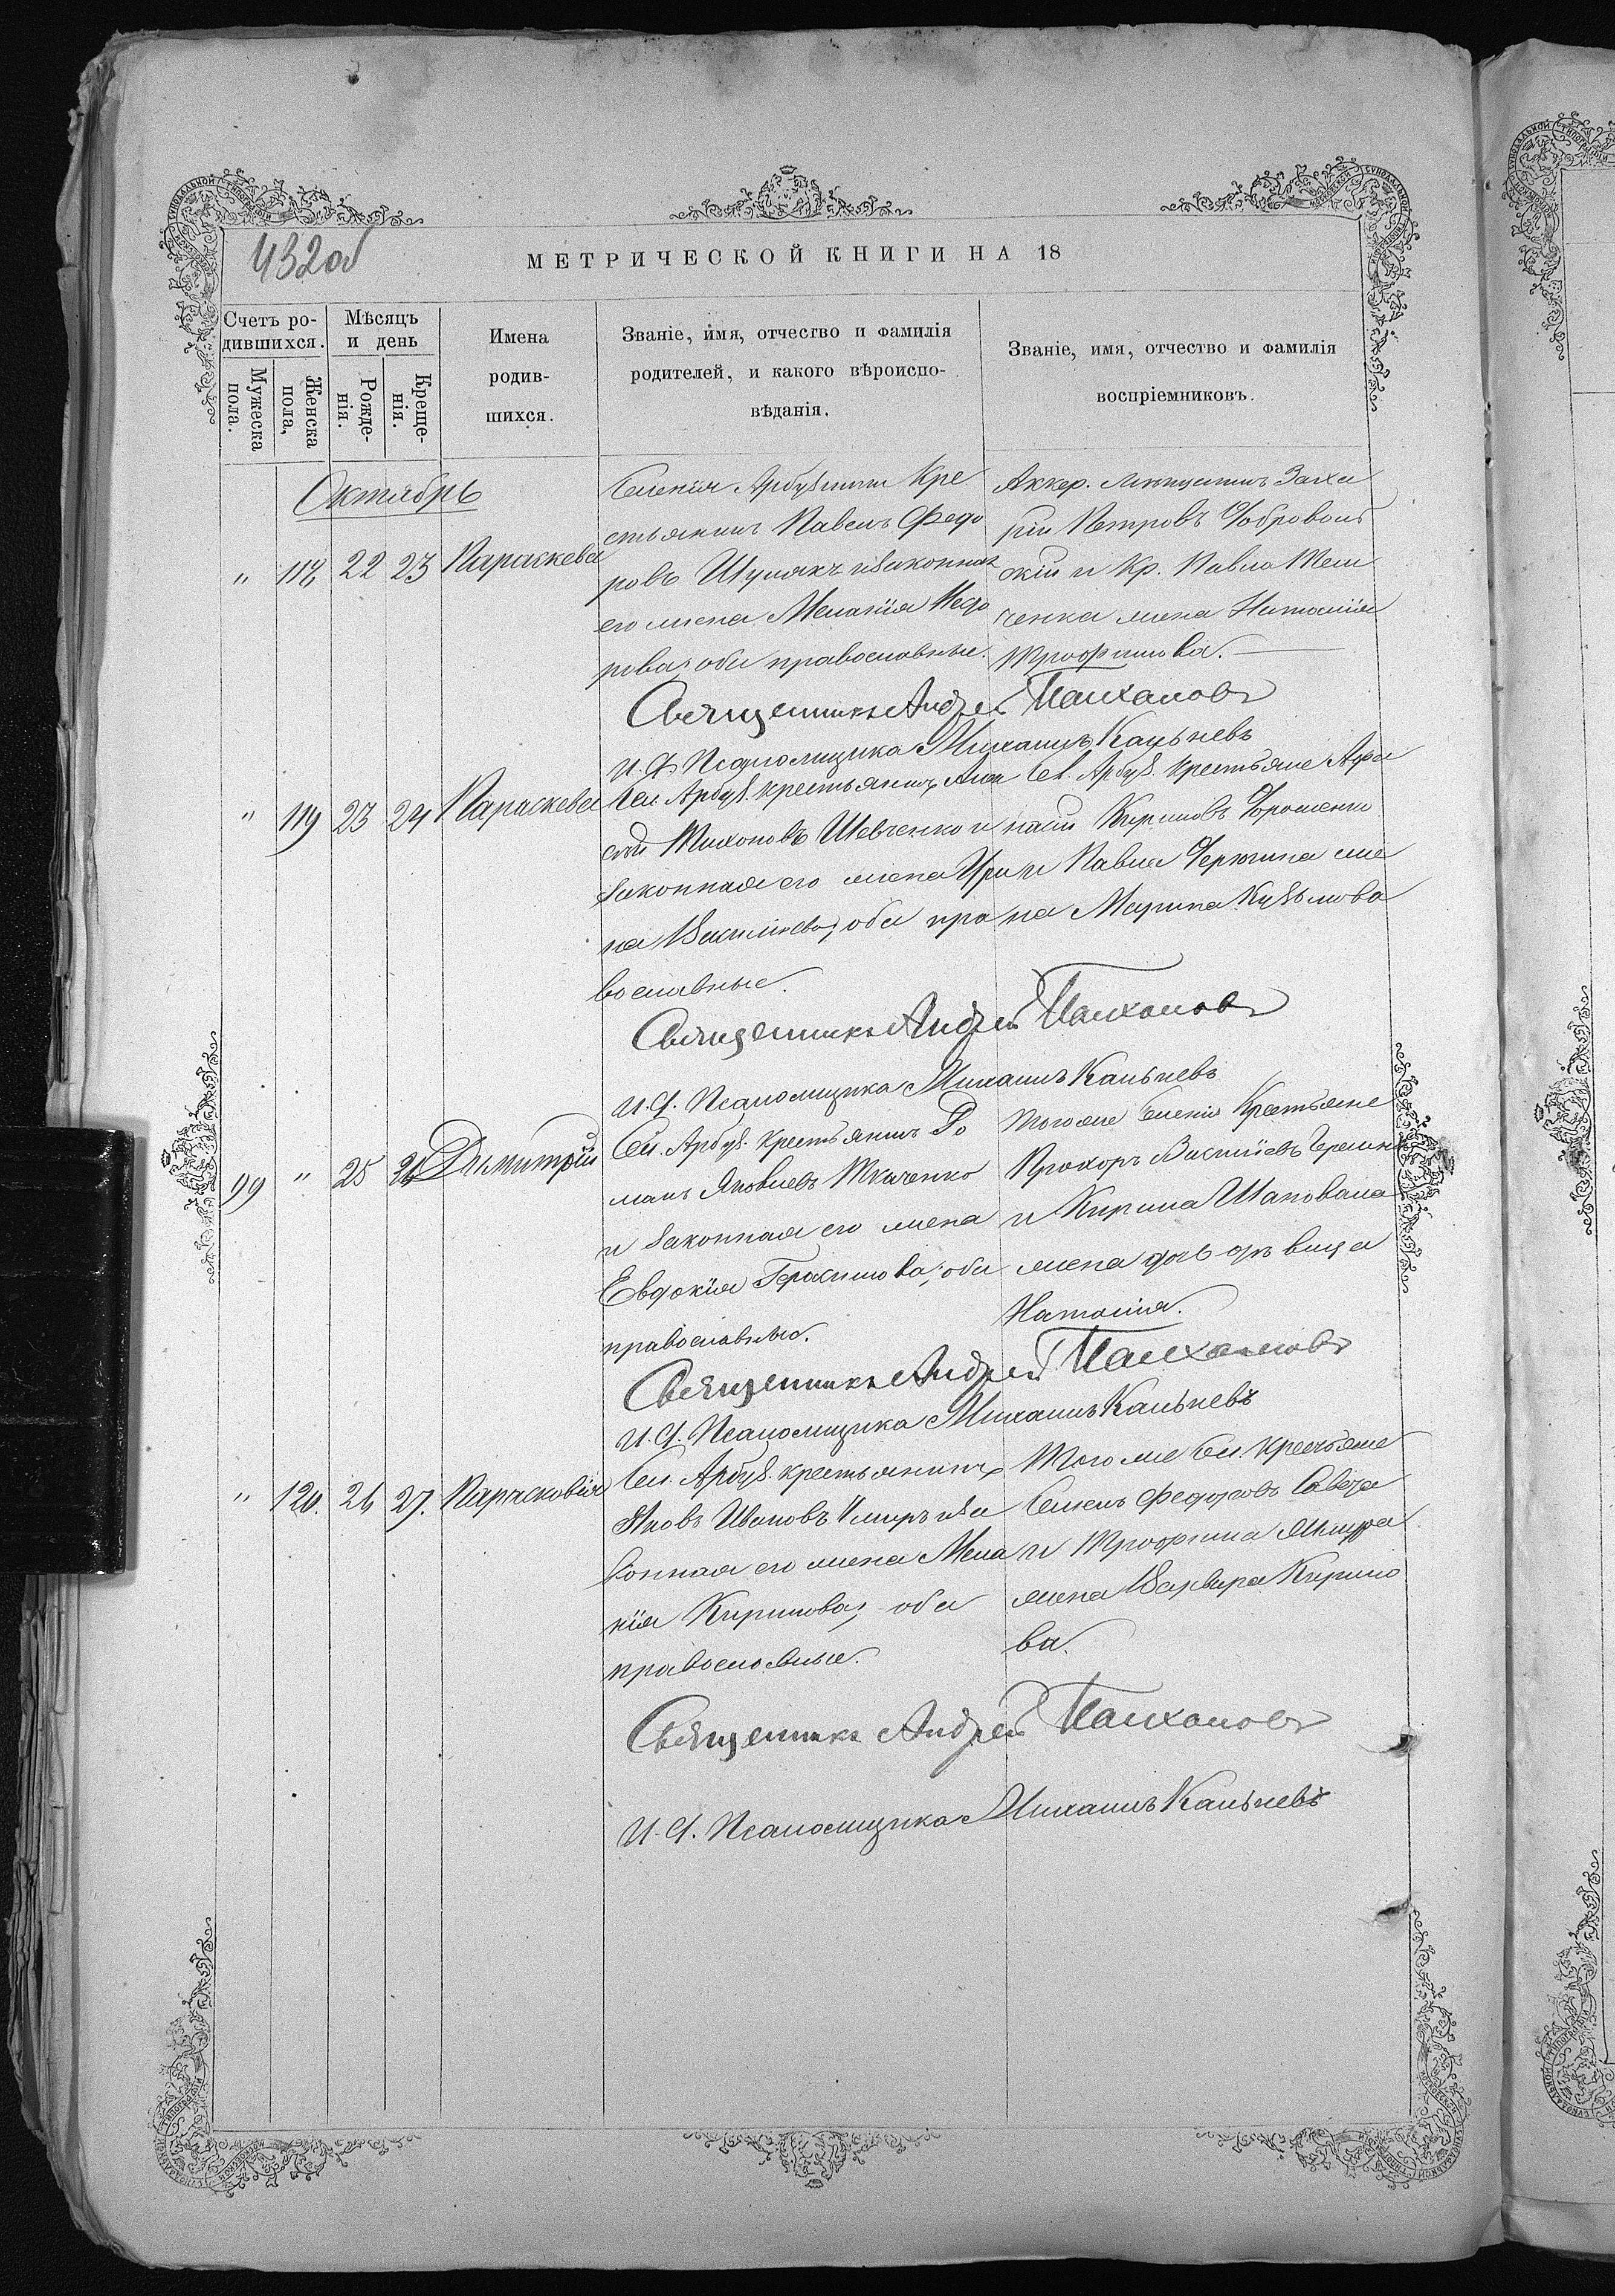 432об
МЕТРИЧЕСКОЙ КНИГИ НА 18
Счетъ ро-
дившихся.
Мужеска
пола.
Женска
пола,
Мѣсяцъ
и день
Рожде-
нія.
Креще-
нія.
Имена
родив-
шихся.
Званіе, имя, отчество и фамилія
родителей, и какого вѣроиспо-
вѣданія.
Званіе, имя, отчество и фамилія
воспріемниковъ.
Октябрь
" 118 22 23 Параскева
Селенія Арбузинки Кре
стьянинъ Павелъ Федо
ровъ Шулякъ и законная
его жена Меланія
рова, оба православные.
Аккер. мѣщанинъ Заха
рій Петровъ Добровол
скій и Кр. Павла
ченка жена Наталія
Трофимова.
Священникъ Андрей Палхановъ
И. Д. Псаломщика Михаилъ
" 119 23 24 Параскева
Сел. Арбуз. крестьянинъ Але
сѣй Тихоновъ Шевченко и
законная его жена Ири
на Васильева, оба пра
вославные.
Сел. Арбуз. Крестьяне Афа
насій Кириловъ Дорошенко
и Павла жe
на Марина Кузьмова
Священникъ Андрей Палхановъ
И. Д. Псаломщика Михаилъ
99 " 25 26 Димитрій
Сел. Арбуз. Крестьянинъ Ро
манъ Яковлевъ Ткаченко
и законная его жена
Евдокія Герасимова, оба
православные.
Того же Селенія Крестьяне
Прохоръ Васильевъ
и Кирила Шаповала
жена дочь дѣвица
Наталія.
Священникъ Андрей Палхановъ
И. Д. Псаломщика Михаилъ
" 120. 26 27. Парасковія
Сел. Арбуз. крестьянинъ
Яковъ Ивановъ и за
конная его жена Мела
нія Кирилова, оба
православные.
Того же Сел. крестьяне
Семенъ Федотовъ
и Трофима
жена Варвара Кирило
ва.
Священникъ Андрей Палхановъ
И. Д. Псаломщика Михаилъ